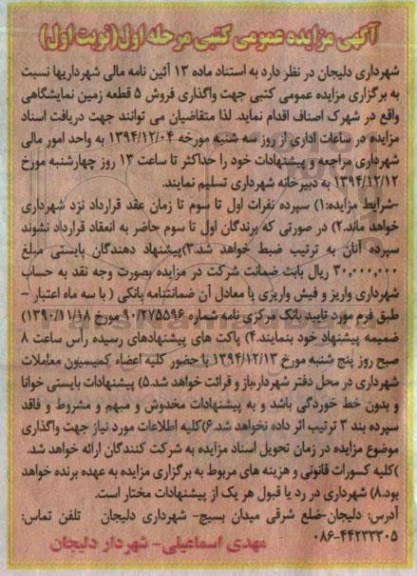 آگهی مزایده عمومی کتبی مرحله اول(نوبت اول)
شهرداری دلیجان در نظر دارد به استناد ماده ۱۳ آئین نامه مالی شهرداریها نسبت
به برگزاری مزایده عمومی کتبی جهت واگذاری فروش ۵ قطعه زمین نمایشگاهی
واقع در شهرک اصناف اقدام نماید. لذا متقاضیان می توانند جهت دریافت اسناد
مزایده در ساعات اداری از روز سه شنبه مورخه ۱۳۹۴/۱۲/۰۴ به واحد امور مالی
شهرداری مراجعه و پیشنهادات خود را حداکثر تا ساعت ۱۳ روز چهارشنبه مورخ
۱۳۹۴/۱۲/۱۲ به دبیرخانه شهرداری تسلیم نمایند.
-شرایط مزایده:۱) سپرده نفرات اول تا سوم تا زمان عقد قرارداد نزد شهرداری
خواهد ماند.۲) در صورتی که برندگان اول تا سوم حاضر به انعقاد قرارداد نشوند
سپرده آنان به ترتیب ضبط خواهد شد.۳)پیشنهاد دهندگان بایستی مبلغ
۳۰,۰۰۰,۰۰۰ ریال بابت ضمانت شرکت در مزایده بصورت وجه نقد به حساب
شهرداری واریز و فیش واریزی یا معادل آن ضمانتنامه بانکی ( با سه ماه اعتبار -
طبق فرم مورد تایید بانک مرکزی نامه شماره ۹۰/۲۷۵۵۹۶ مورخ ۱۳۹۰/۱۱/۱۸)
ضمیمه پیشنهاد خود بنمایند.۴) پاکت های پیشنهادهای رسیده رأس ساعت ۸
صبح روز پنج شنبه مورخ ۱۳۹۴/۱۲/۱۳ با حضور کلیه اعضاء کمیسیون معاملات
شهرداری در محل دفتر شهردارباز و قرائت خواهد شد.۵) پیشنهادات بایستی خوانا
و بدون خط خوردگی باشد و به پیشنهادات مخدوش و مبهم و مشروط و فاقد
سپرده بند ۳ ترتیب اثر داده نخواهد شد.۶)کلیه اطلاعات مورد نیاز جهت واگذاری
موضوع مزایده در زمان تحویل اسناد مزایده به شرکت کنندگان ارائه خواهد شد.
)کلیه کسورات قانونی و هزینه های مربوط به برگزاری مزایده به عهده برنده خواهد
بود.۸) شهرداری در رد یا قبول هر یک از پیشنهادات مختار است.
آدرس: دلیجان-ضلع شرقی میدان بسیج- شهرداری دلیجان تلفن تماس:
۰۸۶-۴۴۲۲۳۳۰۵
مهدی اسماعیلی- شهردار دلیجان